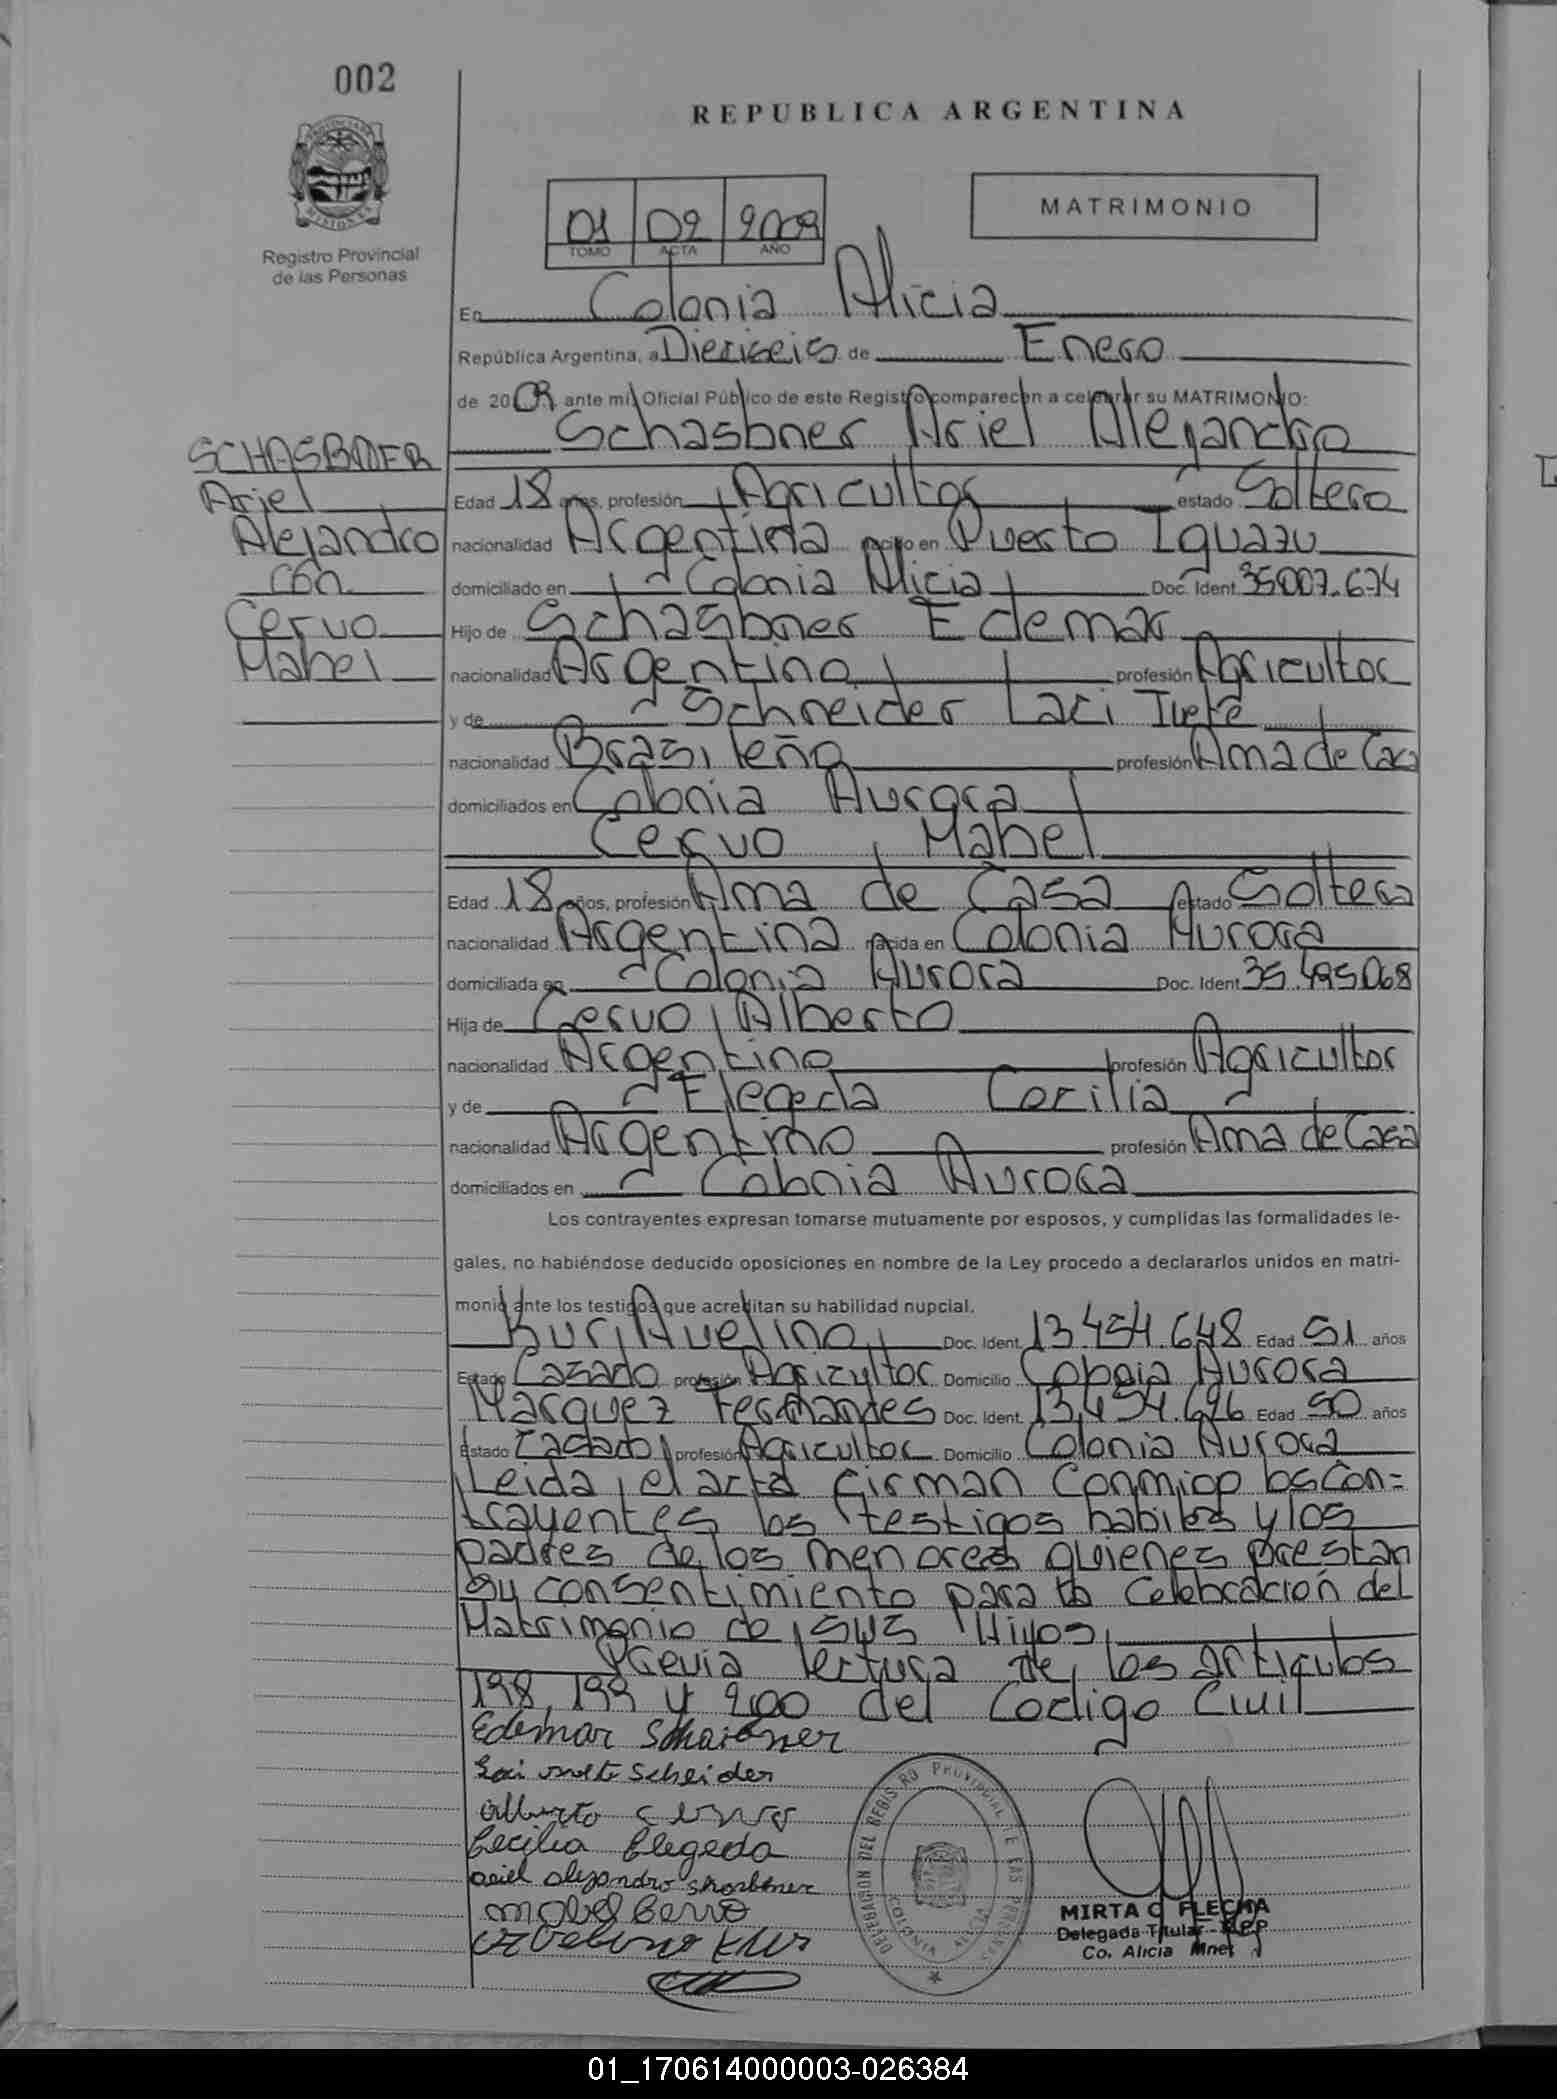 002
REPUBLICA ARGENTINA
PROVINCIA DE MISIONES
Registro Provincial
de las Personas
01 02 2009
TOMO ACTA AÑO
MATRIMONIO
En Colonia Alicia
República Argentina, a Dieciseis de Enero
de 2009 ante mi, Oficial Público de este Registro comparecen a celebrar su MATRIMONIO:
Schasbner Ariel Alejandro
SCHASBNER
Ariel
Alejandro
con
Cervo
Mabel
Edad 18 años, profesión Agricultor estado Soltero
nacionalidad Argentina nacido en Puerto Iguazu
domiciliado en Colonia Alicia Doc. Ident. 35.007.674
Hijo de Schasbner Edemar
nacionalidad Argentino profesión Agricultor
y de Schneider Laci Ivete
nacionalidad Brasileño profesión Ama de Casa
domiciliados en Colonia Aurora
Cervo Mabel
Edad 18 años, profesión Ama de Casa estado Soltera
nacionalidad Argentina nacida en Colonia Aurora
domiciliada en Colonia Aurora Doc. Ident. 35.495068
Hija de Cervo Alberto
nacionalidad Argentino profesión Agricultor
y de Elegeda Cecilia
nacionalidad Argentino profesión Ama de Casa
domiciliados en Colonia Aurora
Los contrayentes expresan tomarse mutuamente por esposos, y cumplidas las formalidades le-
gales, no habiéndose deducido oposiciones en nombre de la Ley procedo a declararlos unidos en matri-
monio ante los testigos que acreditan su habilidad nupcial.
Kur, Avelino Doc. Ident. 13.454.648 Edad 51 años
Estado Casado profesión Agricultor Domicilio Colonia Aurora
Marquez Fernandes Doc. Ident. 13.454.696 Edad 50 años
Estado Casado profesión Agricultor Domicilio Colonia Aurora
Leida el acta firman conmigo los con=
trayentes los testigos habiles y los
padres de los menores quienes prestan
su consentimiento para la celebracion del
Matrimonio de sus Hijos
Previa lectura de los articulos
198, 199 y 200 del Codigo Civil
Edemar Schasbner
Laci Ivete Scheider
Alberto Cervo
Cecilia Elegeda
Ariel Alejandro Shasbner
Mabel Cervo
Avelino Kur
DELEGACION DEL REGISTRO PROVINCIAL DE LAS PERSONAS
COLONIA ALICIA
MIRTA C FLECHA
Delegada Titular - R.P.P
Co. Alicia Mnes
01_170614000003-026384